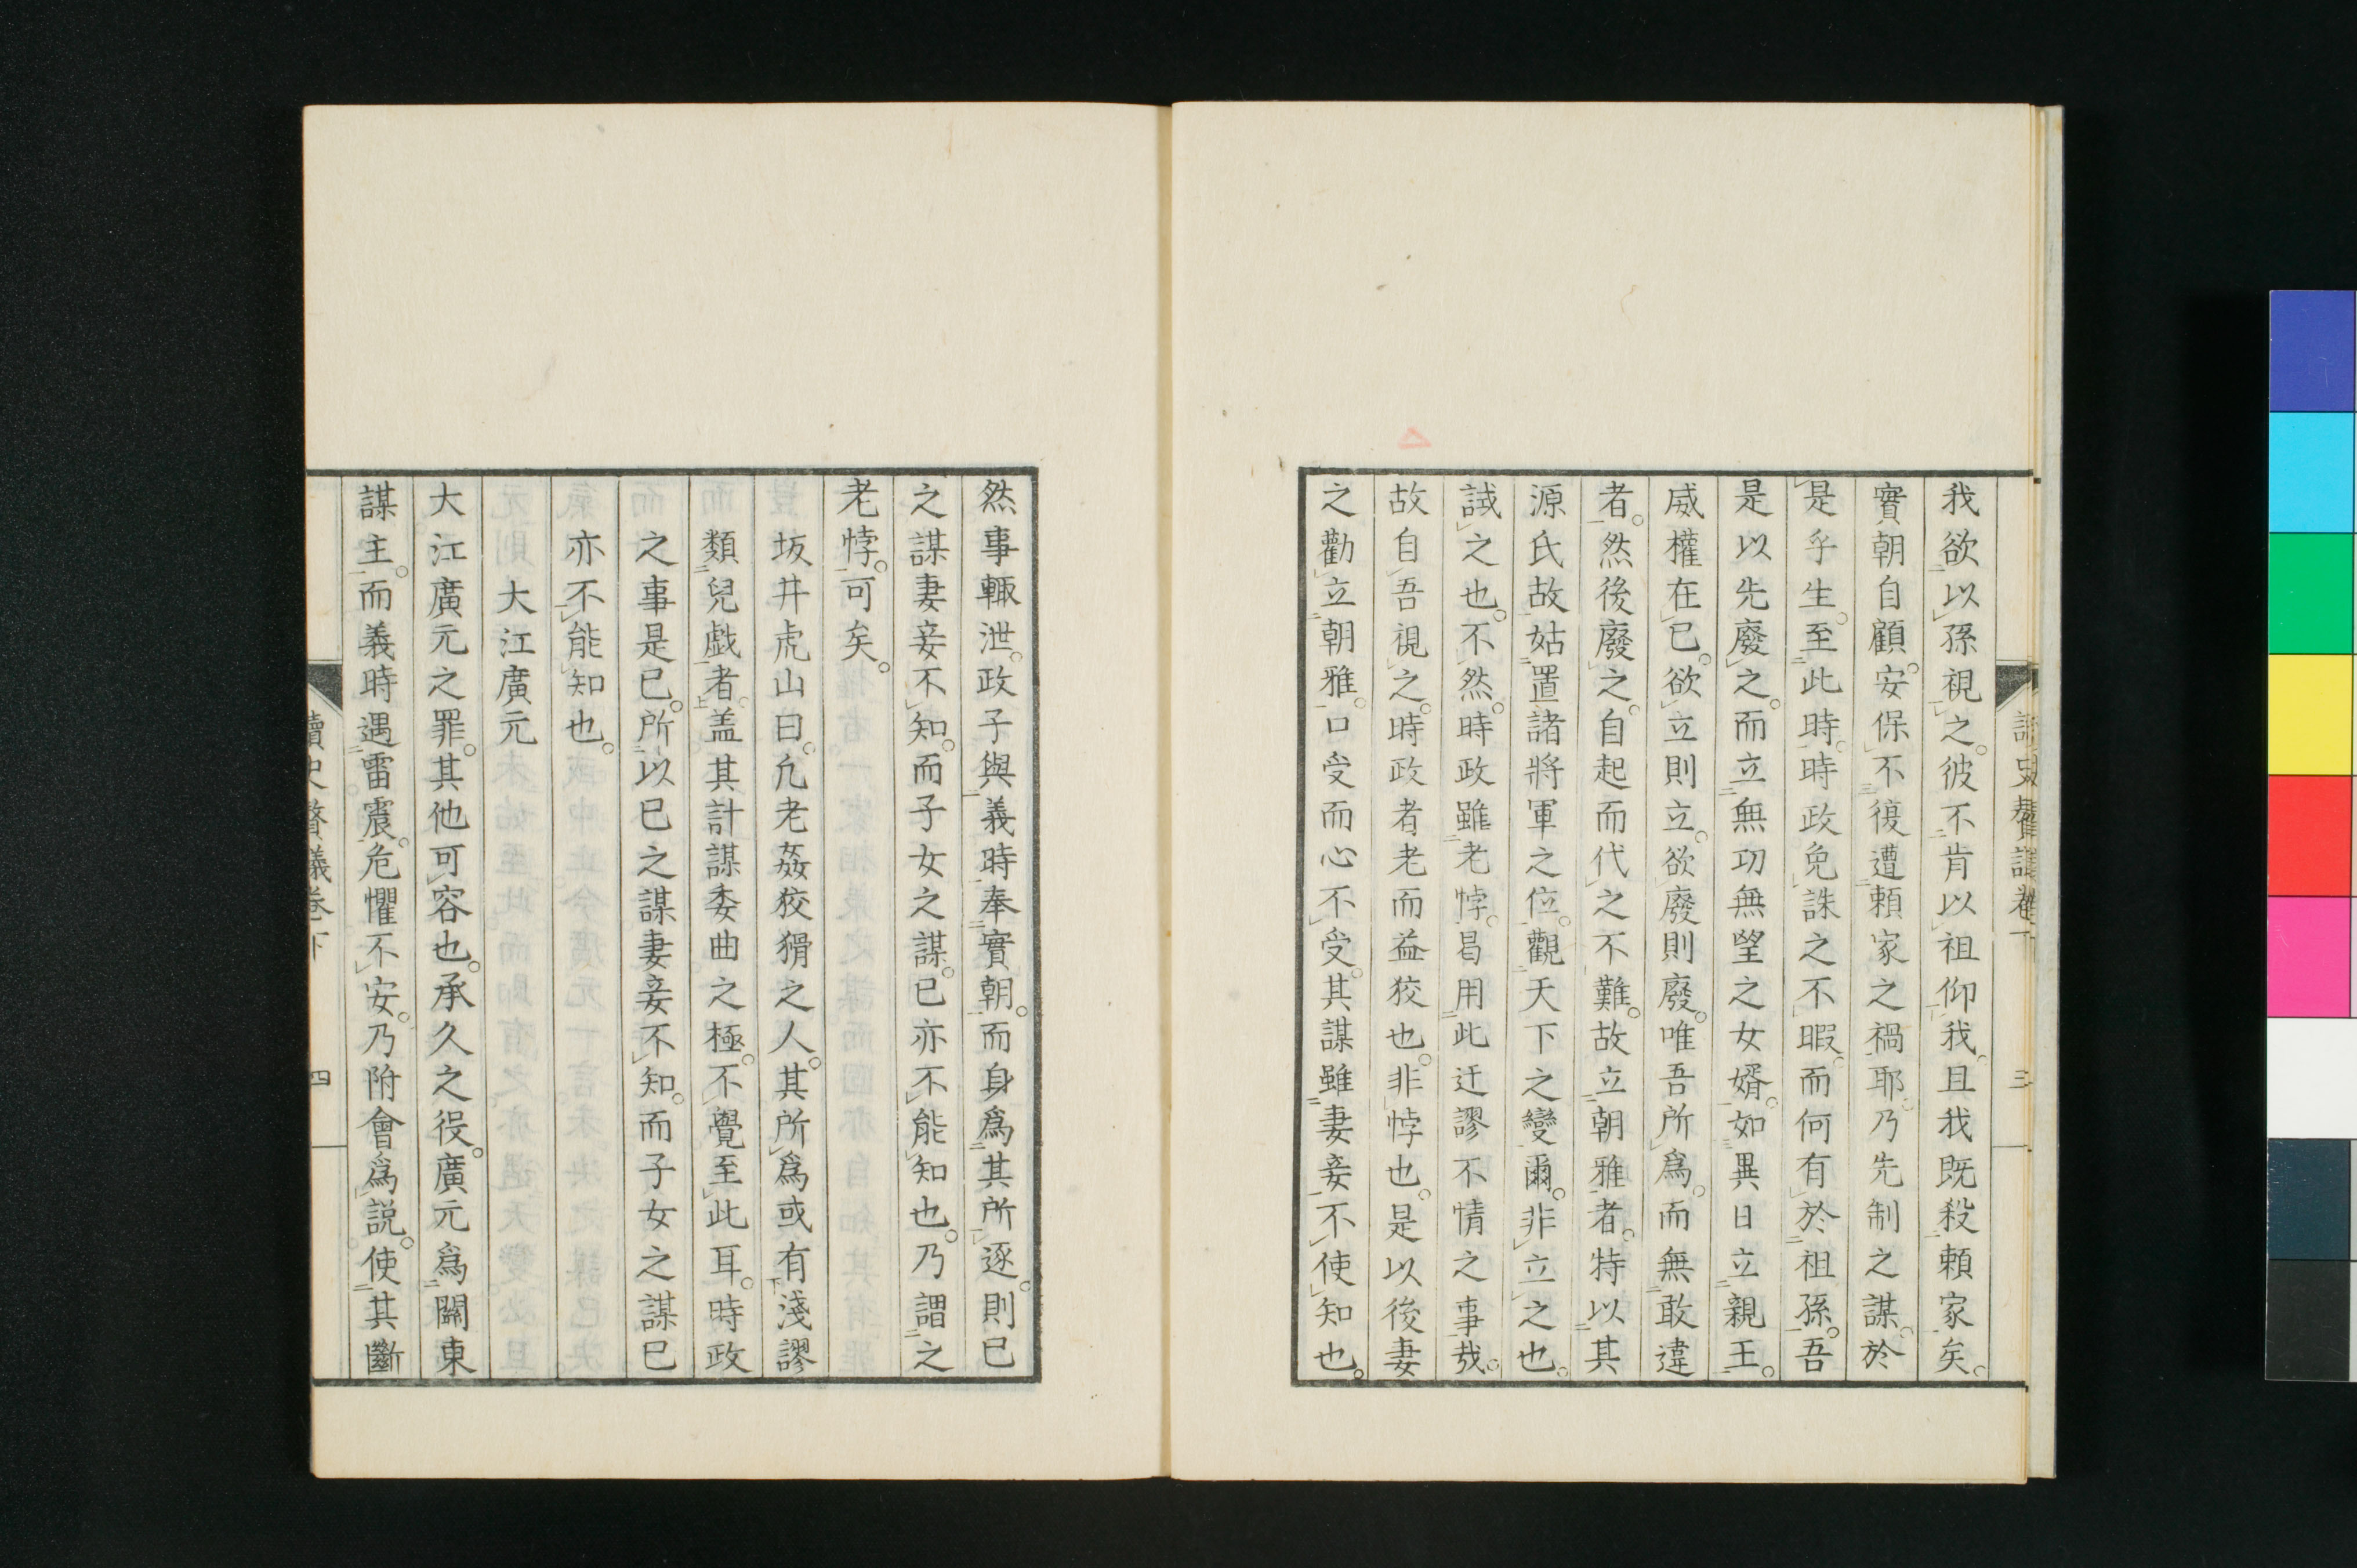 我欲以孫視之。彼不肯以祖仰我。且我既殺頼家矣。
實朝自顧。安保不復遭頼家之禍耶。乃先制之謀。於
是乎生。至此時。時政免誅之不暇。而何有於祖孫。吾
是以先廢之。而立無功無望之女婿。如異日立親王。
威權在已。欲立則立。欲廢則廢。唯吾所爲。而無敢違
者。然後廢之。自起而代之不難。故立朝雅者。特以其
源氏故。姑置諸將軍之位。觀天下之變爾。非立之也。
誠之也。不然。時政雖老悖。曷用此迂謬不情之事哉。
故自吾視之。時政者老而益狡也。非悖也。是以後妻
之勸立朝雅。口受而心不受。其謀雖妻妾不使知也。
讀史贅議卷下 三
然事輙泄。政子與義時奉實朝。而身爲其所逐。則已
之謀妻妾不知。而子女之謀。已亦不能知也。乃謂之
老悖。可矣。
坂井虎山曰。凢老姦狡猾之人。其所爲或有淺謬
類兒戯者。盖其計謀委曲之極。不覺至此耳。時政
之事是已。所以已之謀妻妾不知。而子女之謀已
亦不能知也。
大江廣元
大江廣元之罪。其他可容也。承久之役。廣元爲關東
謀主。而義時遇雷震。危懼不安。乃附會爲説。使其斷
讀史贅議卷下 四